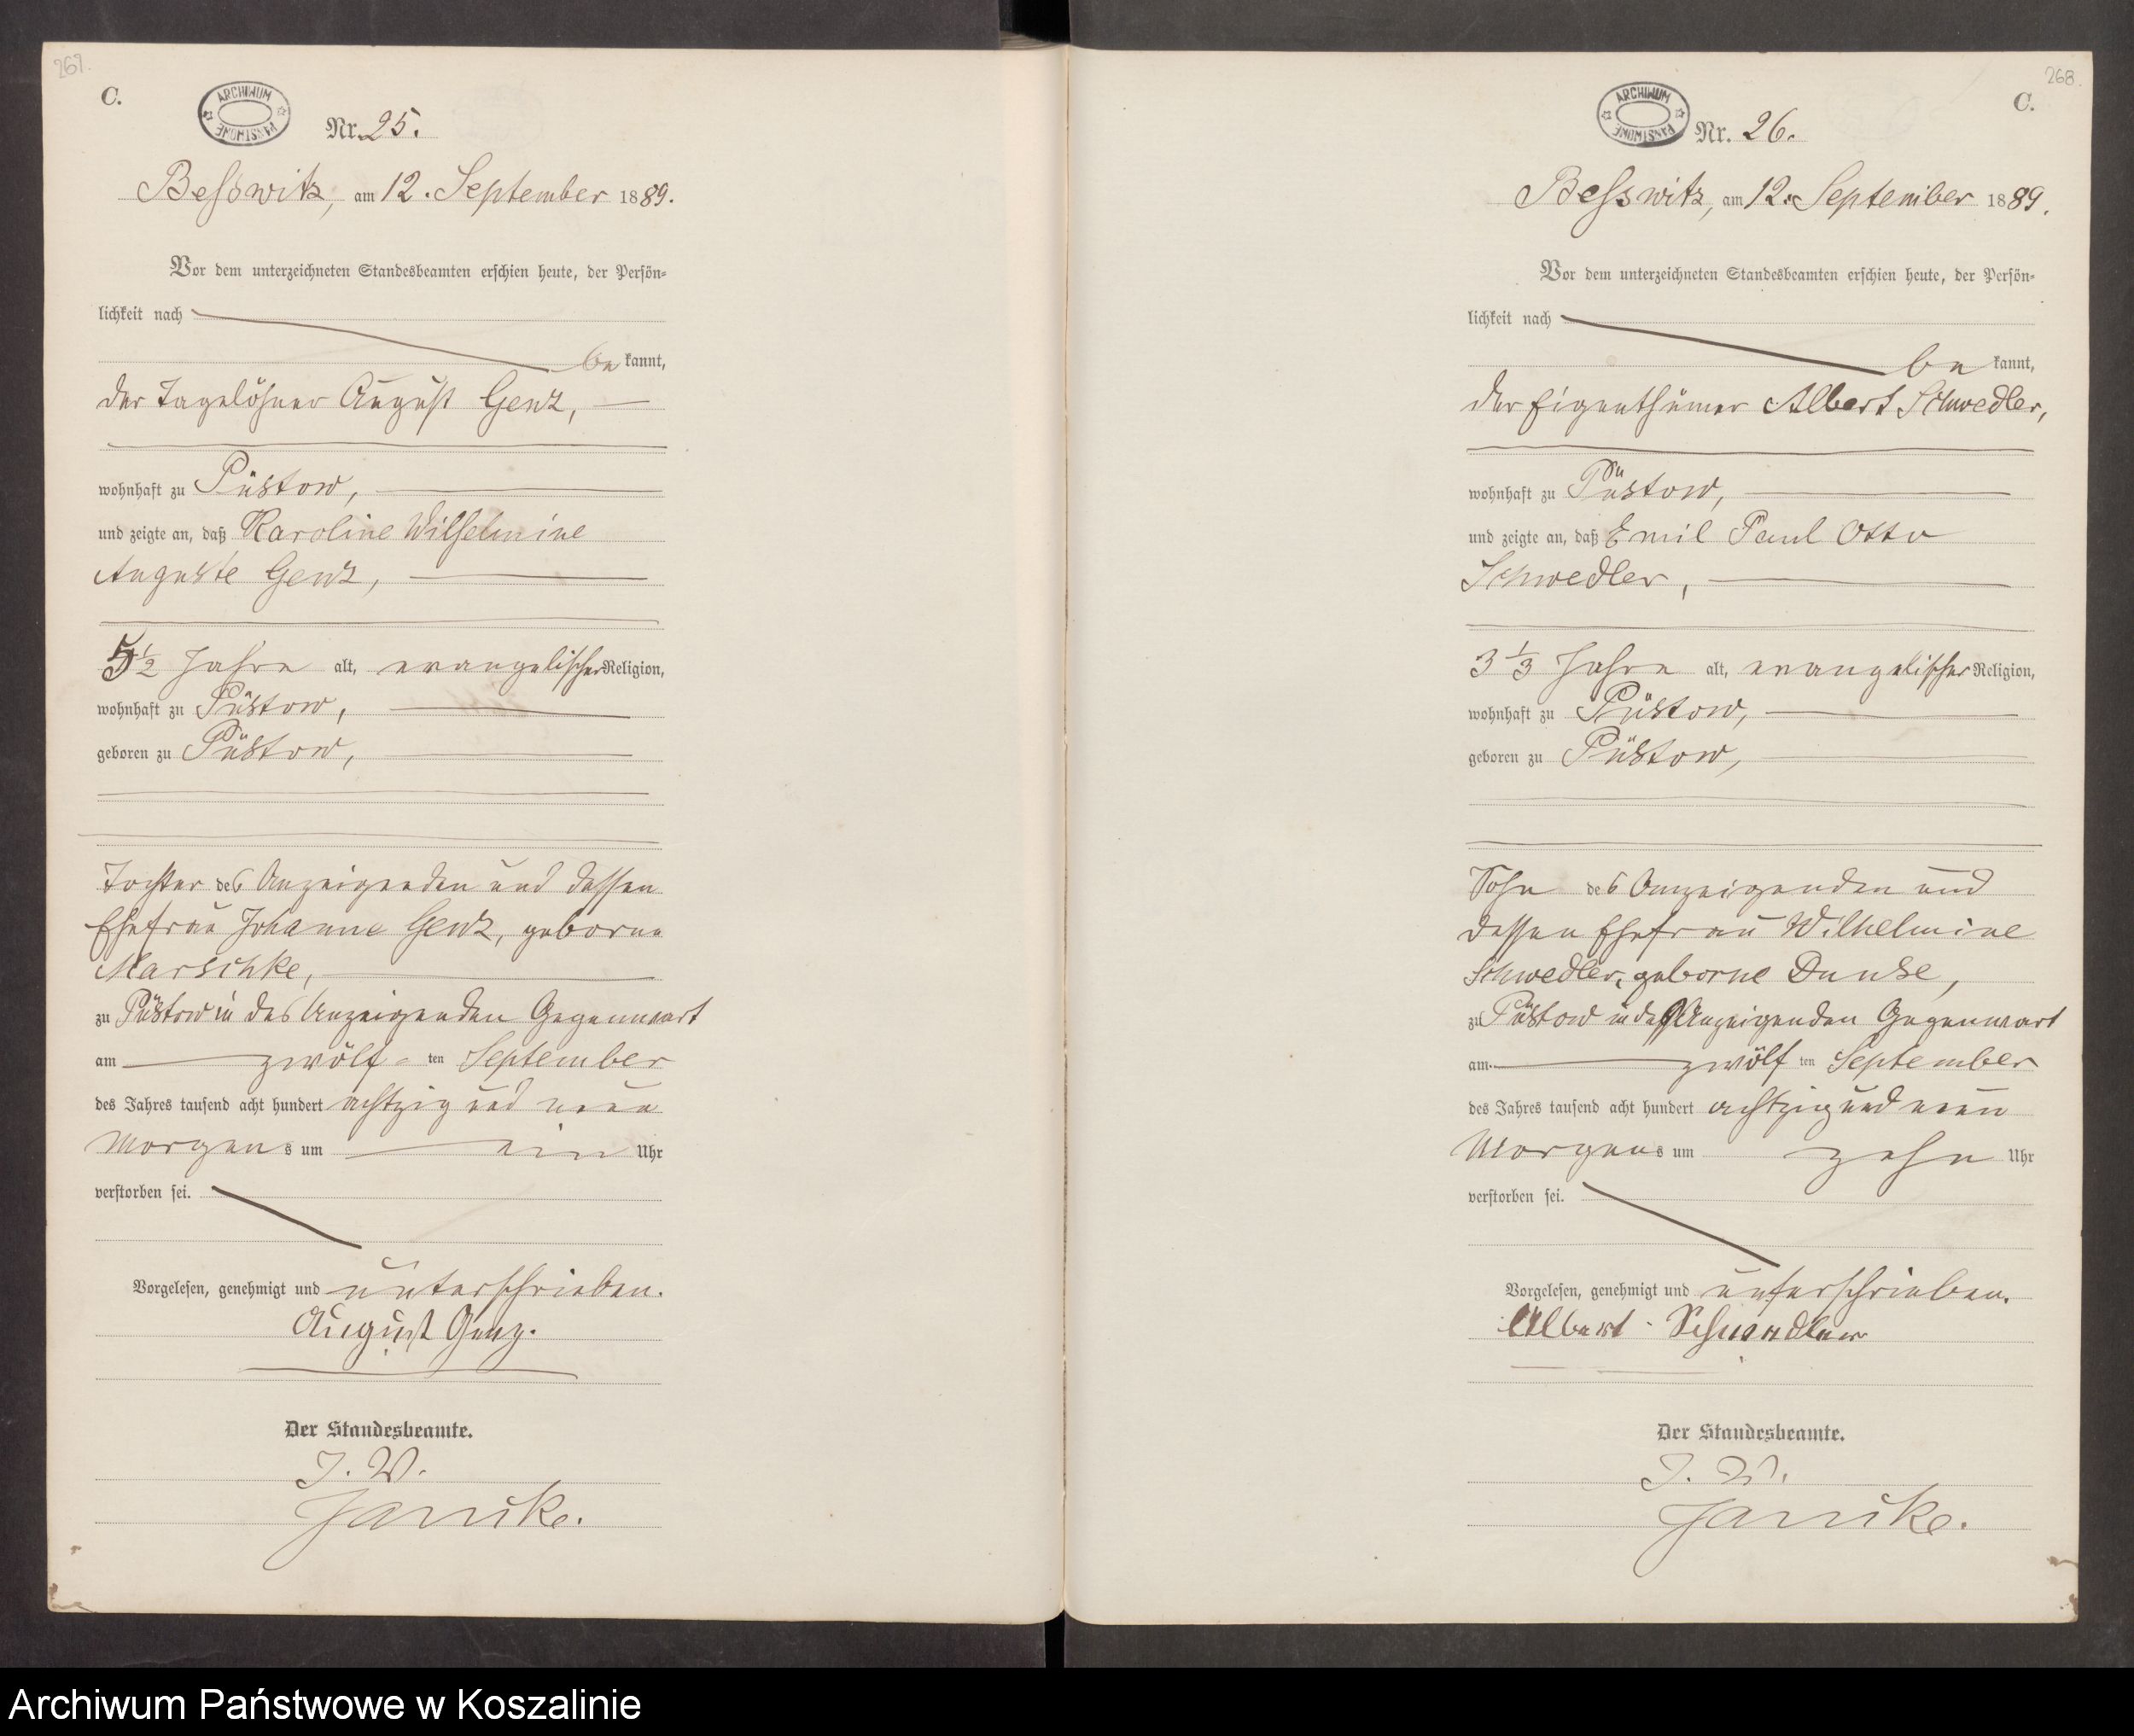 267.
C.
ARCHIWUM PAŃSTWOWE
Nr. 25.
Besswitz, am 12. September 1889.
Vor dem unterzeichneten Standesbeamten erschien heute, der Persön-
lichkeit nach
be kannt,
der Tagelöhner August Genz,
wohnhaft zu Püstow,
und zeigte an, daß Karoline Wilhelmine
Auguste Genz,
5 1/2 Jahre alt, evangelischer Religion,
wohnhaft zu Püstow,
geboren zu Püstow,
Tochter des Anzeigenden und dessen
Ehefrau Johanne Genz, geborne
Marschke,
zu Püstow in des Anzeigenden Gegenwart
am zwölf ten September
des Jahres tausend acht hundert achtzig und neun
Morgens um ein Uhr
verstorben sei.
Vorgelesen, genehmigt und unterschrieben.
August Genz.
Der Standesbeamte.
J. V.
Janike.
268.
C.
ARCHIWUM PAŃSTWOWE
Nr. 26.
Besswitz, am 12. September 1889.
Vor dem unterzeichneten Standesbeamten erschien heute, der Persön-
lichkeit nach
be kannt,
der Eigenthümer Albert Schwedler,
wohnhaft zu Püstow,
und zeigte an, daß Emil Paul Otto
Schwedler,
3 1/3 Jahre alt, evangelischer Religion,
wohnhaft zu Püstow,
geboren zu Püstow,
Sohn des Anzeigenden und
dessen Ehefrau Wilhelmine
Schwedler, geborne
zu Püstow in des Anzeigenden Gegenwart
am zwölf ten September
des Jahres tausend acht hundert achtzig und neun
Morgens um zehn Uhr
verstorben sei.
Vorgelesen, genehmigt und unterschrieben.
Albert Schwedler
Der Standesbeamte.
J. V.
Janike.
Archiwum Państwowe w Koszalinie